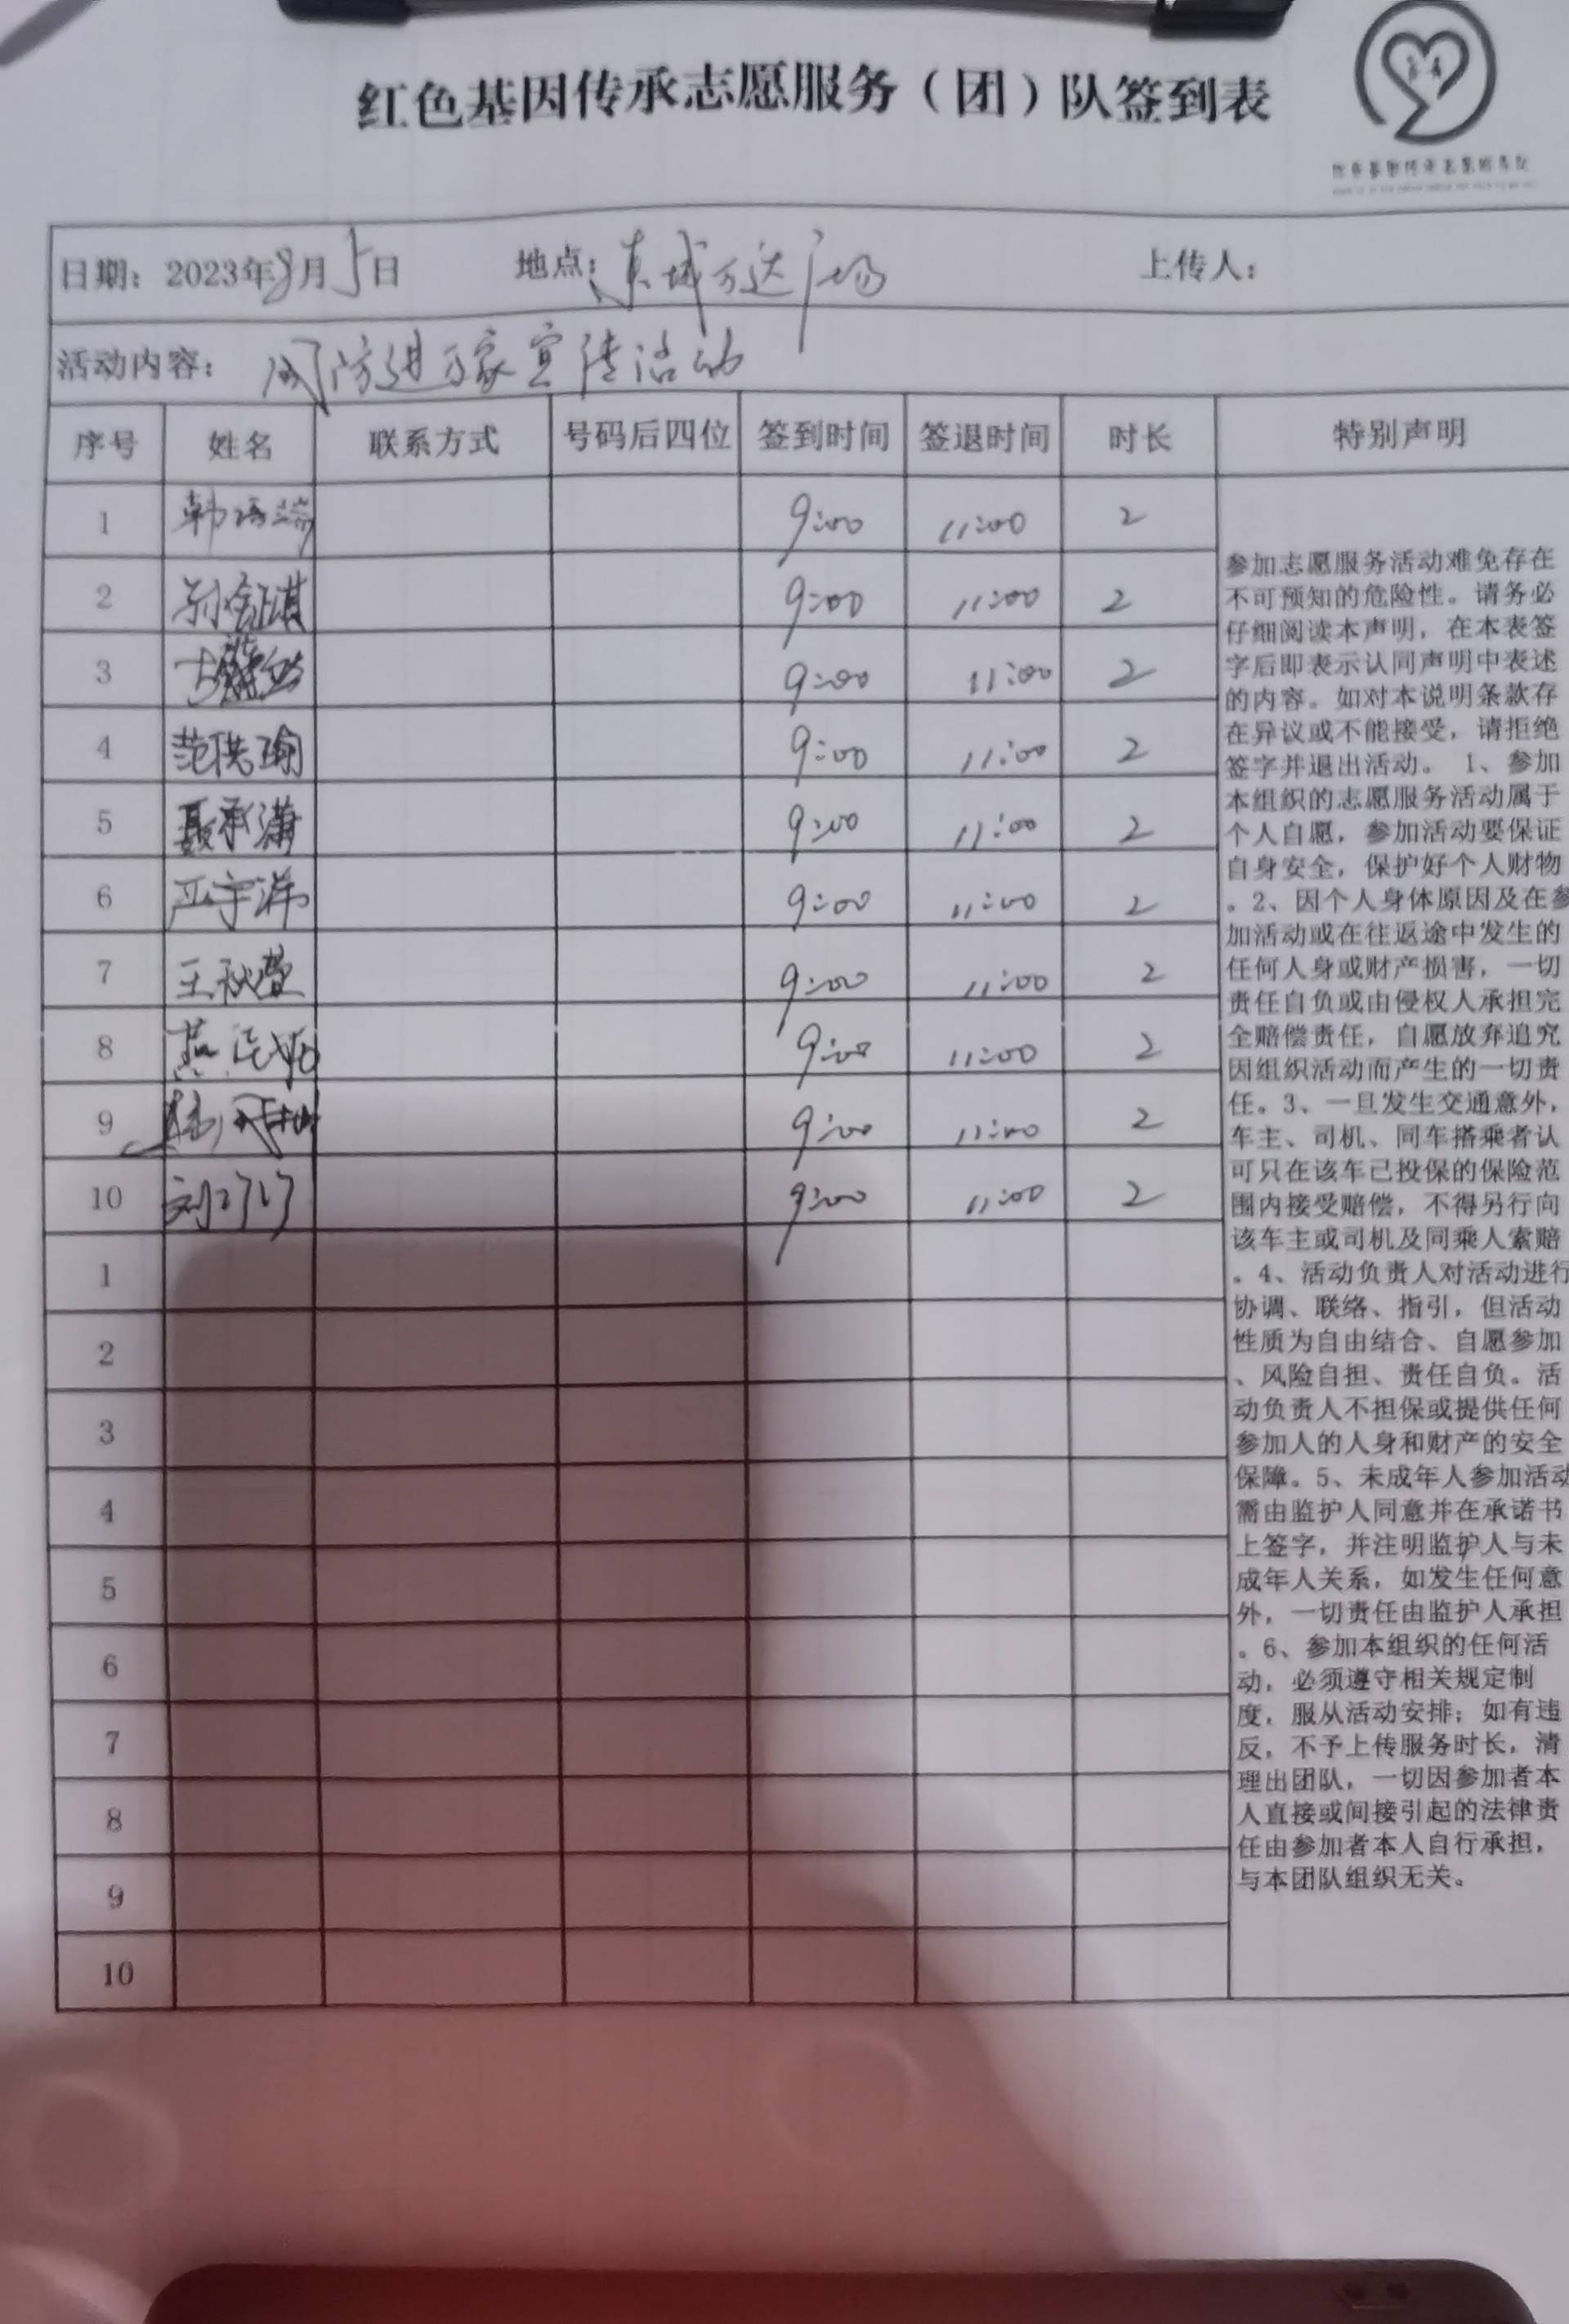 红色基因传承志愿服务（团）队签到表
日期：2023年8月5日 地点：东城万达广场 上传人：
活动内容：国防进万家宣传活动
序号 姓名 联系方式 号码后四位 签到时间 签退时间 时长 特别声明
1 9:00 11:00 2
2 9:00 11:00 2
3 9:00 11:00 2
4 范洪瑜 9:00 11:00 2
5 聂承潇 9:00 11:00 2
6 严宇洋 9:00 11:00 2
7 王秋萱 9:00 11:00 2
8 9:00 11:00 2
9 9:00 11:00 2
10 9:00 11:00 2
1
2
3
4
5
6
7
8
9
10
参加志愿服务活动难免存在
不可预知的危险性。请务必
仔细阅读本声明，在本表签
字后即表示认同声明中表述
的内容。如对本说明条款存
在异议或不能接受，请拒绝
签字并退出活动。 1、参加
本组织的志愿服务活动属于
个人自愿，参加活动要保证
自身安全，保护好个人财物
。2、因个人身体原因及在参
加活动或在往返途中发生的
任何人身或财产损害，一切
责任自负或由侵权人承担完
全赔偿责任，自愿放弃追究
因组织活动而产生的一切责
任。3、一旦发生交通意外，
车主、司机、同车搭乘者认
可只在该车已投保的保险范
围内接受赔偿，不得另行向
该车主或司机及同乘人索赔
。4、活动负责人对活动进行
协调、联络、指引，但活动
性质为自由结合、自愿参加
、风险自担、责任自负。活
动负责人不担保或提供任何
参加人的人身和财产的安全
保障。5、未成年人参加活动
需由监护人同意并在承诺书
上签字，并注明监护人与未
成年人关系，如发生任何意
外，一切责任由监护人承担
。6、参加本组织的任何活
动，必须遵守相关规定制
度，服从活动安排；如有违
反，不予上传服务时长，清
理出团队，一切因参加者本
人直接或间接引起的法律责
任由参加者本人自行承担，
与本团队组织无关。